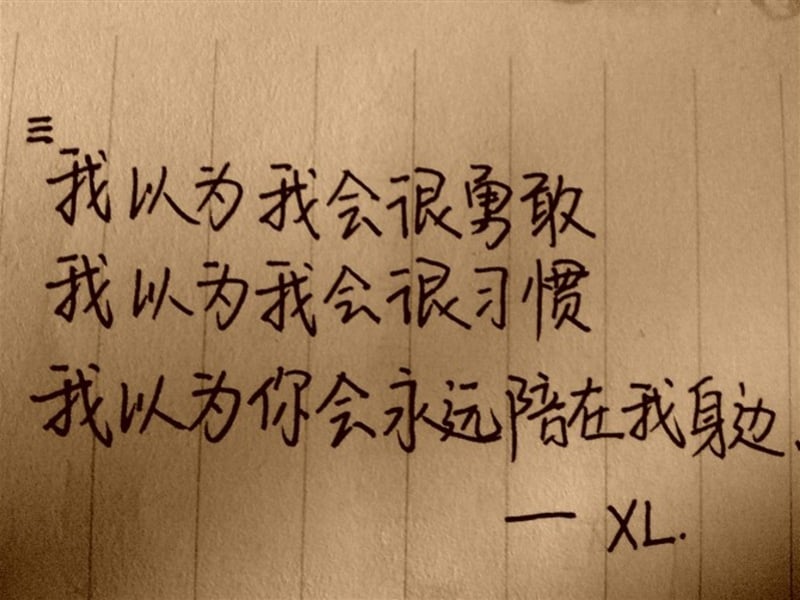 三
我以为我会很勇敢
我以为我会很习惯
我以为你会永远陪在我身边.
— XL.